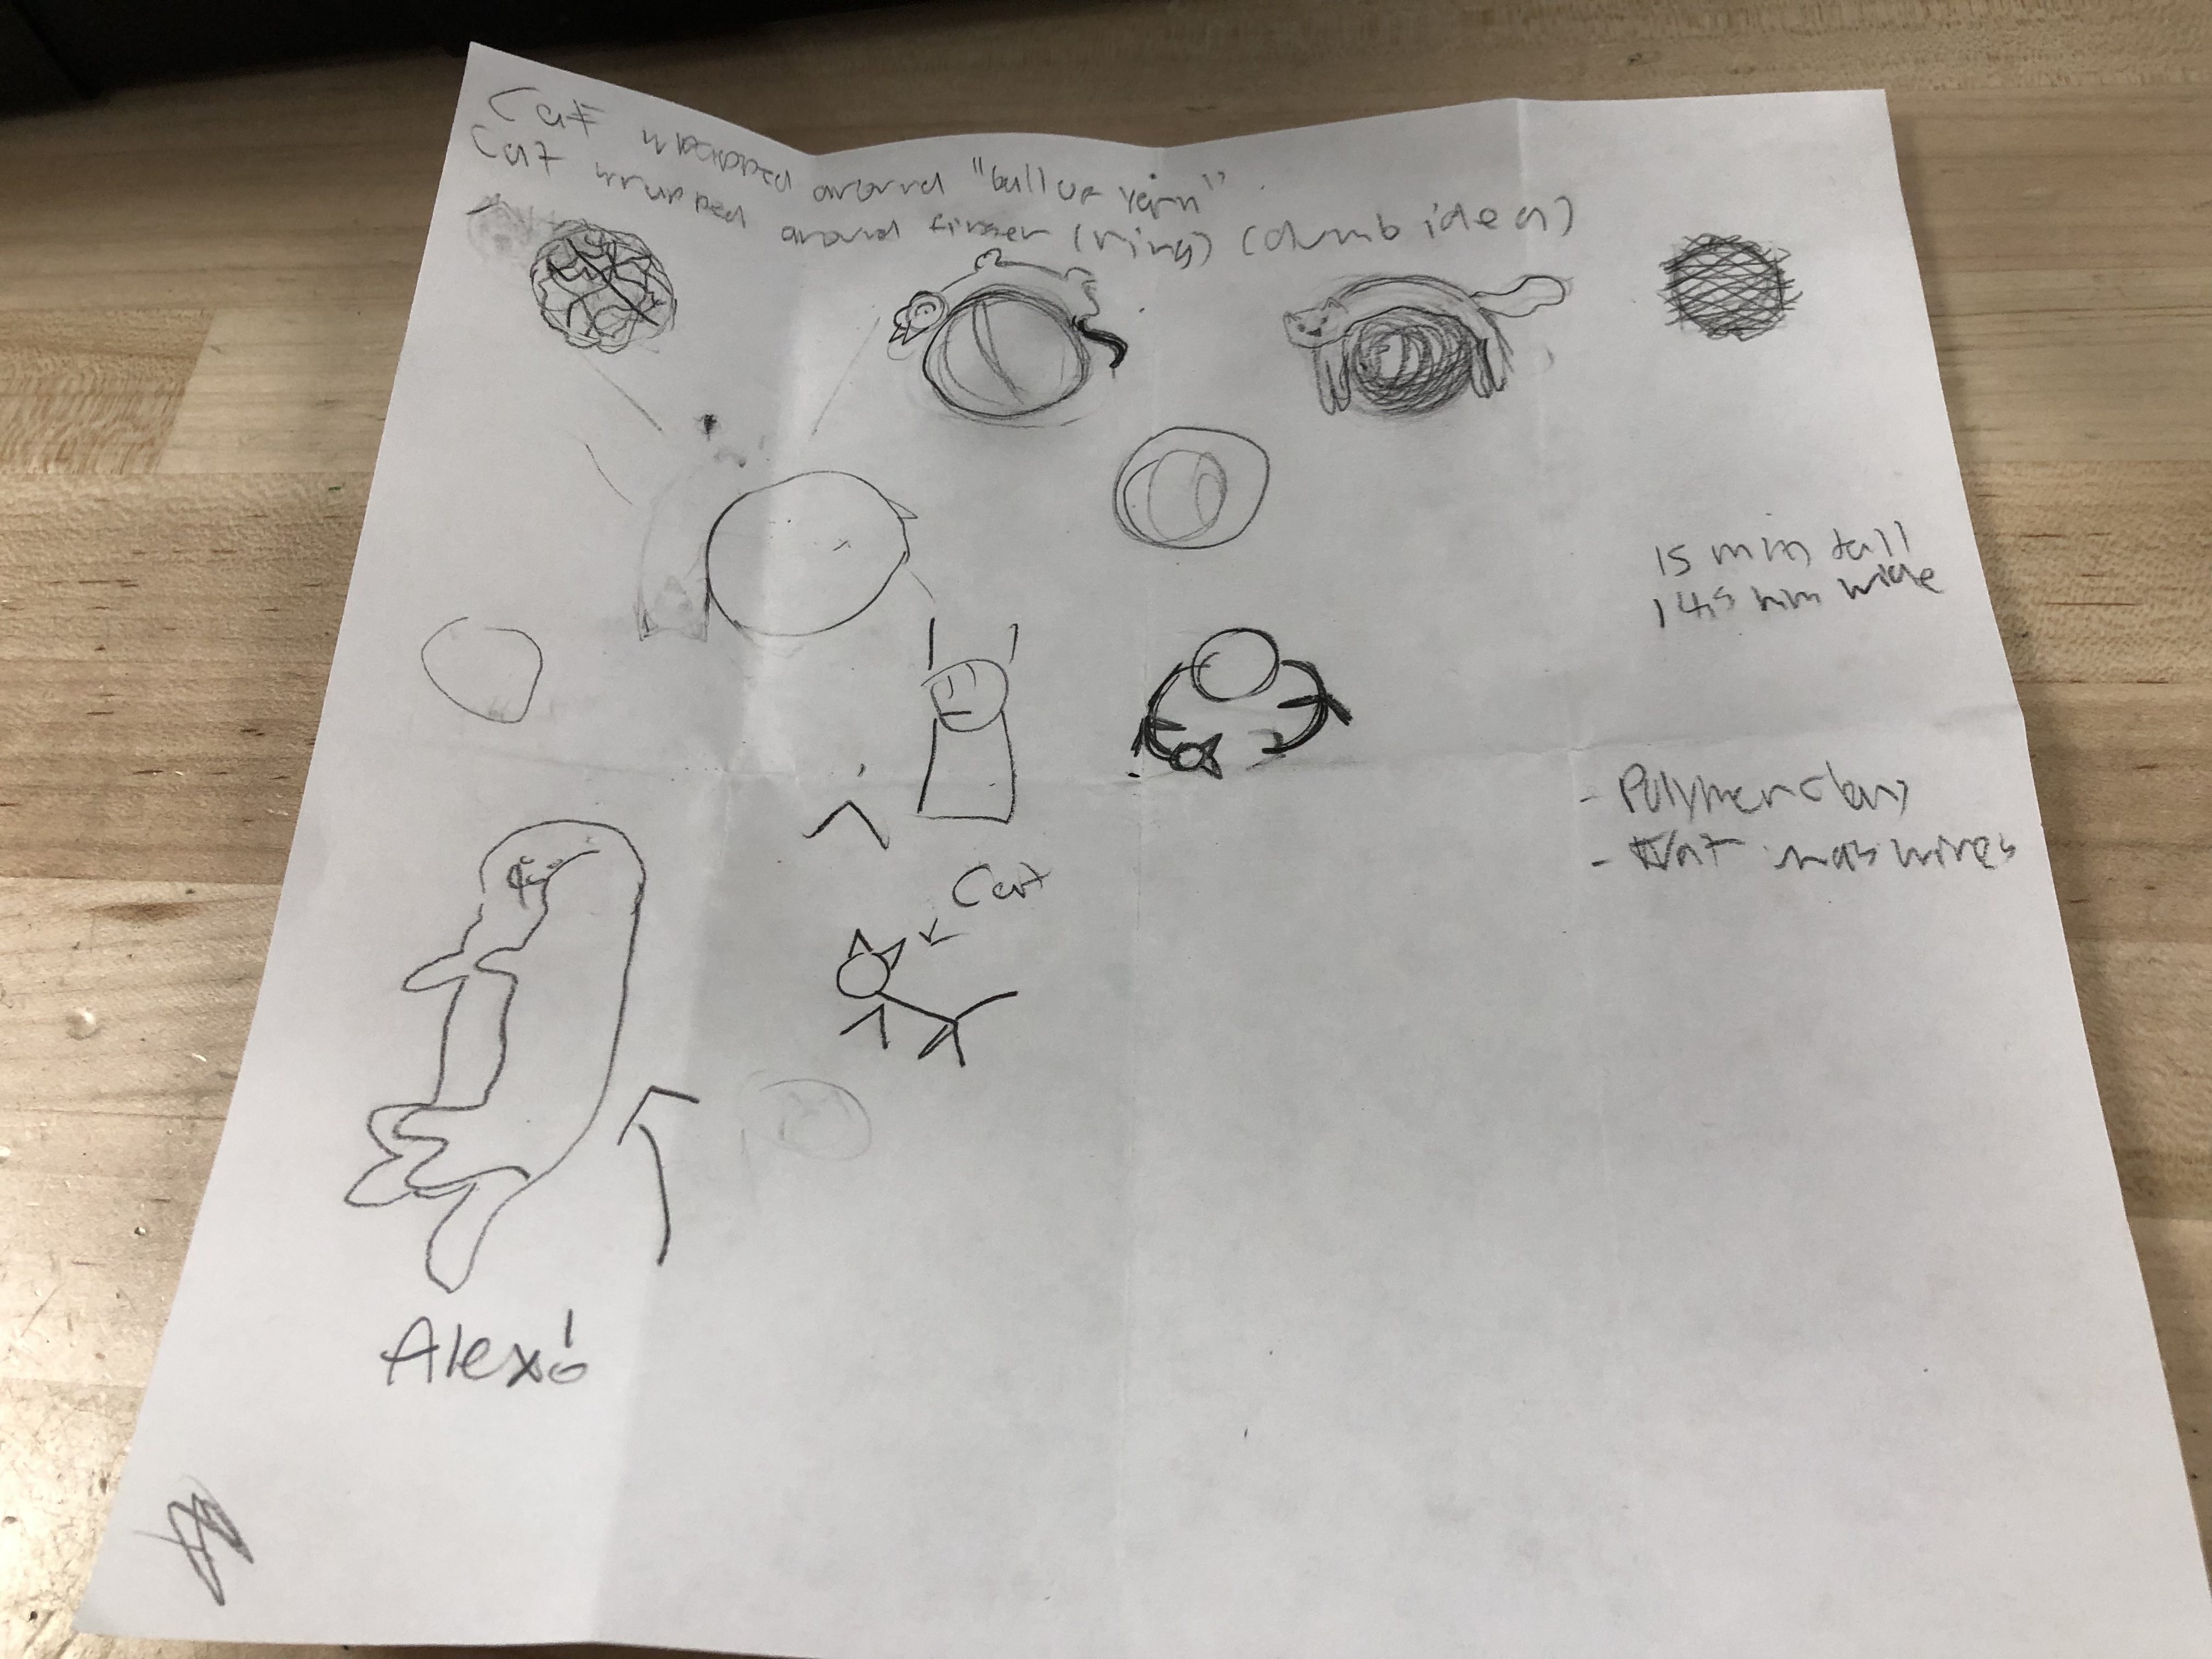 Cat wrapped around "ball of yarn"
Cat wrapped around finger (ring) (dumb idea)
15 mm tall
14.5 mm wide
- Polymer clay
- wires
Cat
Alex